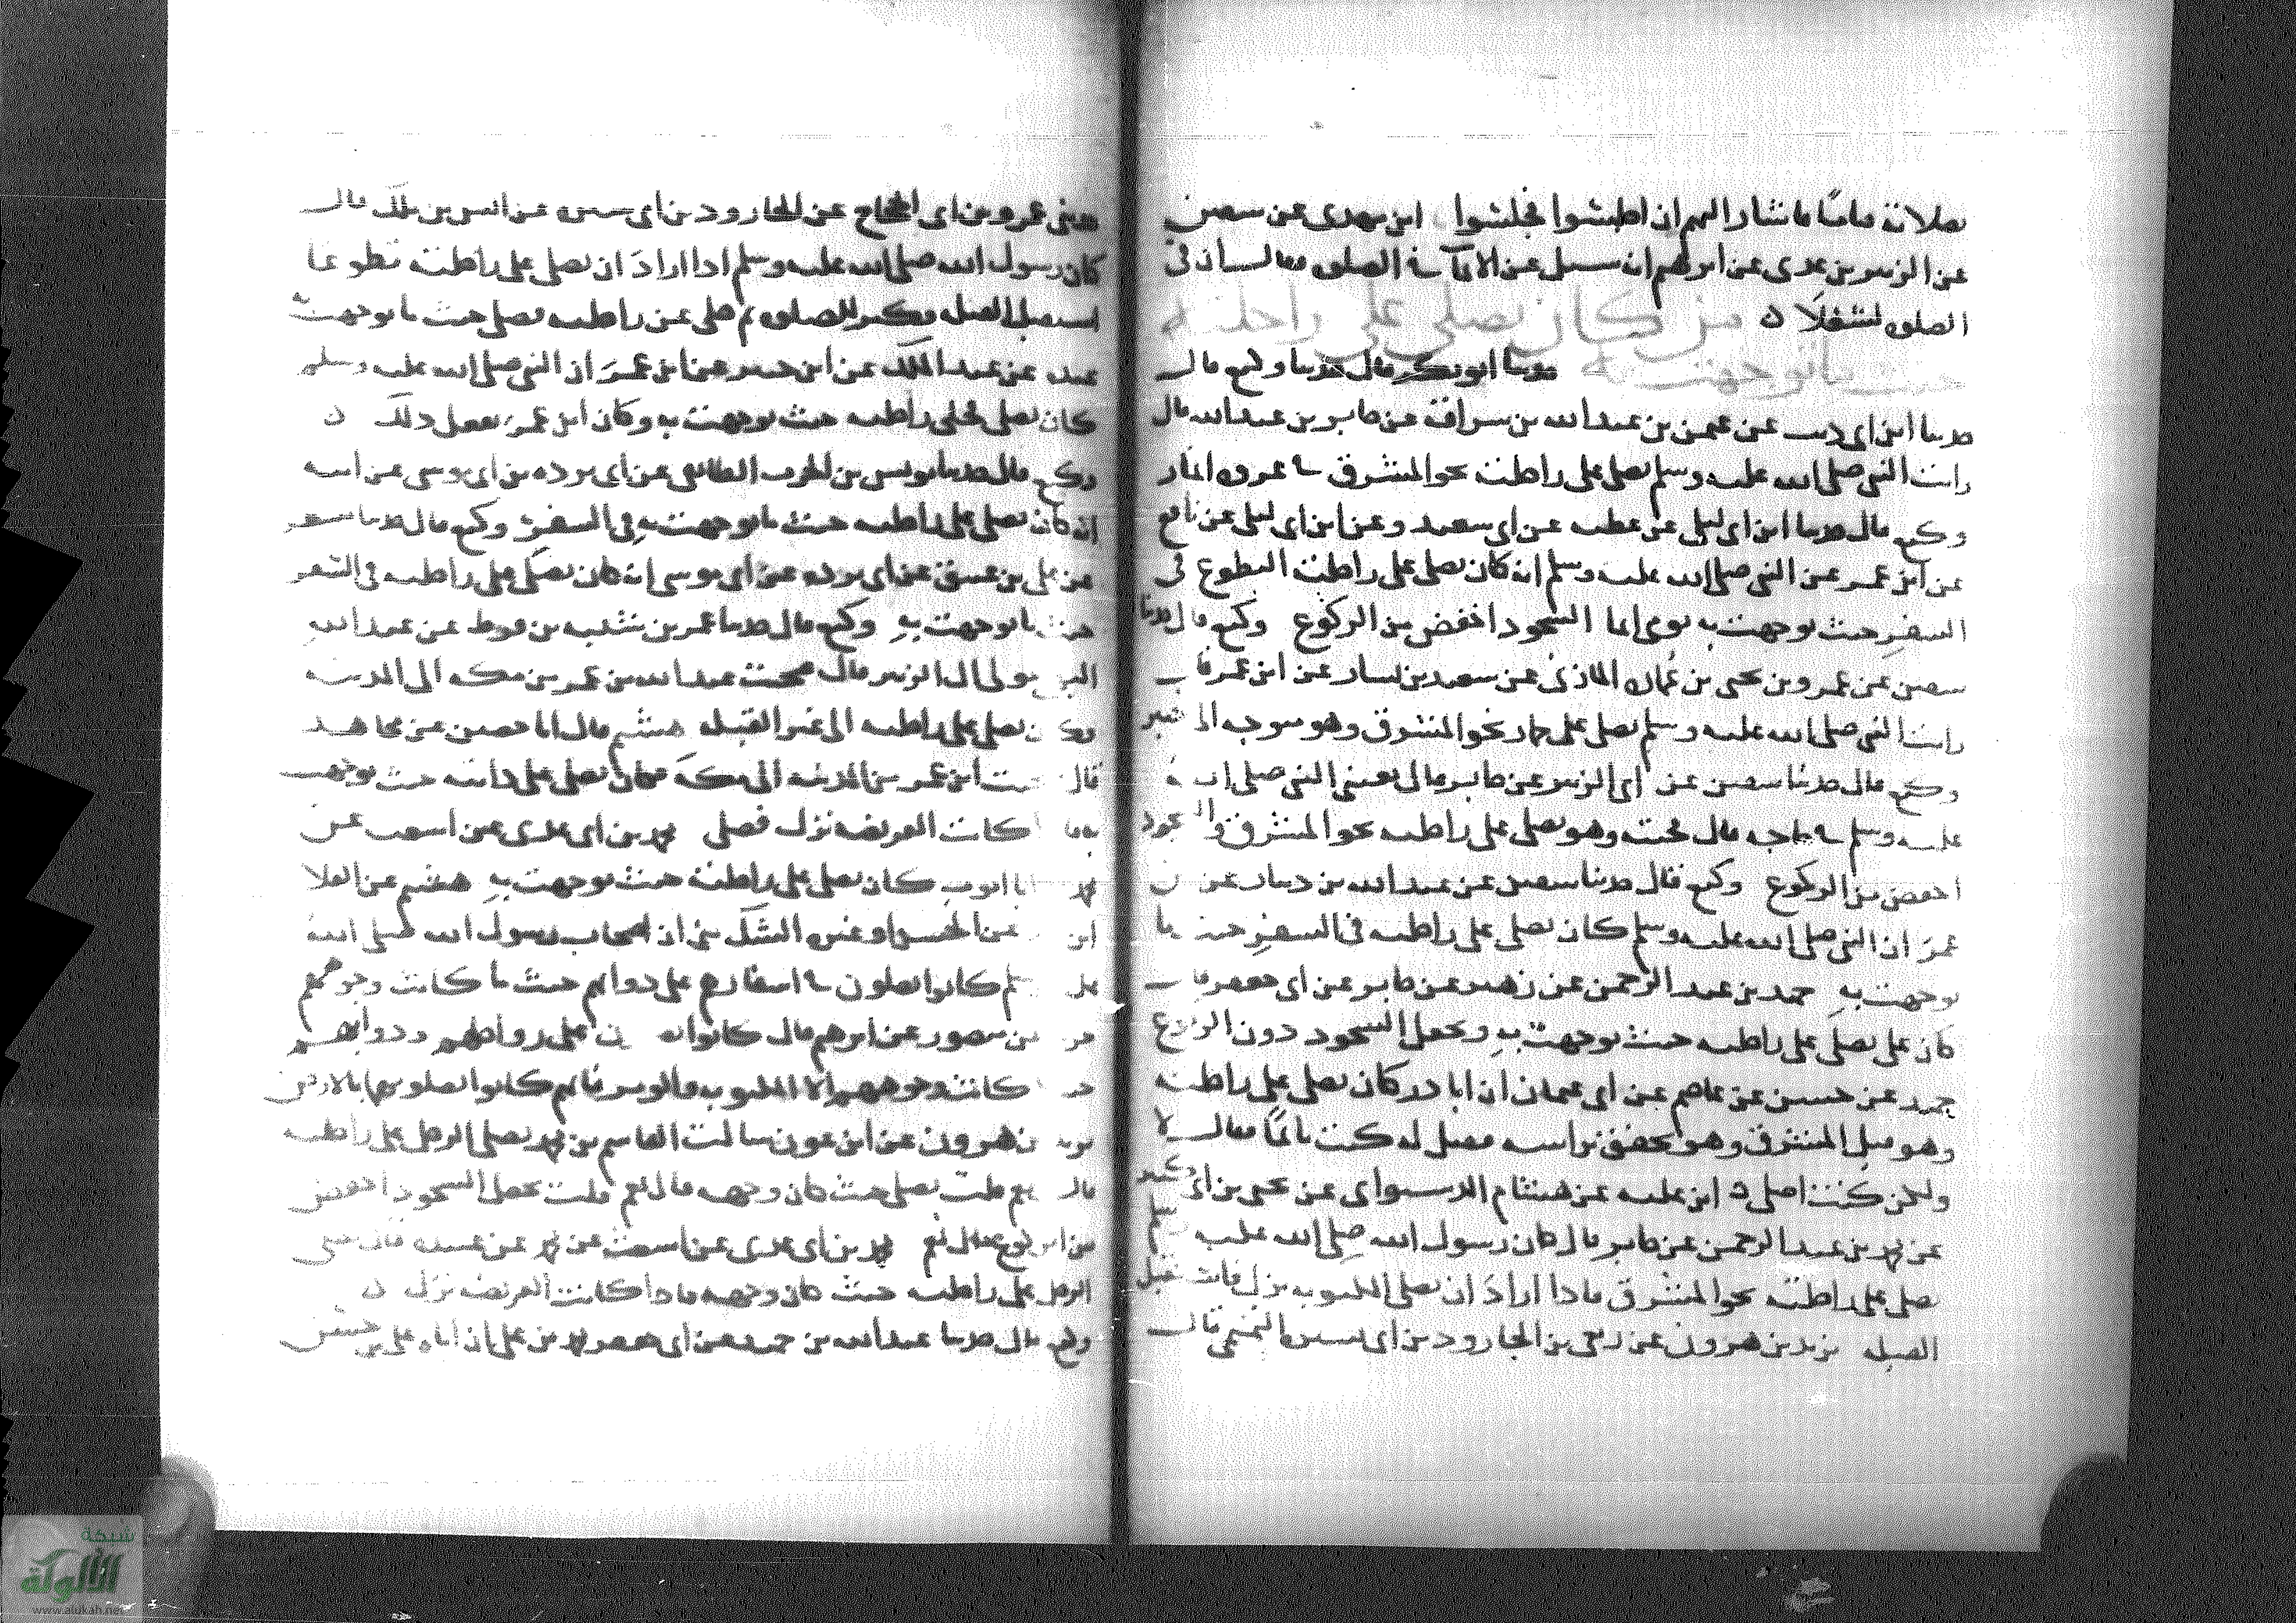 بصلاته قياما فاشار اليهم ان اجلسوا فجلسوا ابن مهدي عن سفين
عن الزبير بن عدي عن ابرهيم انه سئل عن الايماء في الصلوة فقال ان في
الصلوة لشغلا ه من كان يصلي على راحلته
حيث ما توجهت به حدثنا ابو بكر قال حدثنا وكيع قال
حدثنا ابن ابي ذيب عن عثمن بن عبد الله بن سراقة عن جابر بن عبد الله قال
رايت النبي صلى الله عليه وسلم يصلي على راحلته نحو المشرق في غزوة انمار
وكيع قال حدثنا ابن ابي ليلى عن عطية عن ابي سعيد وعن ابن ابي ليلى عن نافع
عن ابن عمر عن النبي صلى الله عليه وسلم انه كان يصلي على راحلته التطوع في
السفر حيث توجهت به يومي ايما السجود اخفض من الركوع وكيع قال حدثنا
سفين عن عمرو بن يحيى بن عمارة المازني عن سعيد بن يسار عن ابن عمر قال
رايت النبي صلى الله عليه وسلم يصلي على حمار نحو المشرق وهو متوجه الى خيبر
وكيع قال حدثنا سفين عن ابي الزبير عن جابر قال بعثني النبي صلى الله
عليه وسلم في حاجة قال فجئت وهو يصلي على راحلته نحو المشرق والسجود
اخفض من الركوع وكيع قال حدثنا سفين عن عبد الله بن دينار عن ابن
عمر ان النبي صلى الله عليه وسلم كان يصلي على راحلته في السفر حيث ما
توجهت به حميد بن عبد الرحمن عن زهير عن جابر عن ابي جعفر قال
كان علي يصلي على راحلته حيث توجهت به ويجعل السجود دون الركوع
حميد عن حسين عن عاصم عن ابي عثمان ان ابا ذر كان يصلي على راحلته
وهو قبل المشرق وهو يخفق براسه فقيل له كنت نائما فقال لا
ولكن كنت اصلي ه ابن علية عن هشام الدستواي عن يحيى بن ابي كثير
عن محمد بن عبد الرحمن عن جابر قال كان رسول الله صلى الله عليه وسلم
يصلي على راحلته نحو المشرق فاذا اراد ان يصلي المكتوبة نزل فاستقبل
القبلة يزيد بن هرون عن ربعي بن الجارود بن ابي سبرة التميمي قال
حدثني عمرو بن ابي الحجاج عن الجارود بن ابي سبرة عن انس بن ملك قال
كان رسول الله صلى الله عليه وسلم اذا اراد ان يصلي على راحلته تطوعا
استقبل القبلة وكبر للصلوة ثم خلى عن راحلته فصلى حيث ما توجهت به
عبدة عن عبد الملك عن ابن جبير عن ابن عمر ان النبي صلى الله عليه وسلم
كان يصلي على راحلته حيث توجهت به وكان ابن عمر يفعل ذلك ه
وكيع قال حدثنا يونس بن الحرث الطائفي عن ابي بردة بن ابي موسى عن ابيه
انه كان يصلي على راحلته حيث ما توجهت به في السفر وكيع قال حدثنا مسعر
عن علي بن عتيق عن ابي بردة عن ابي موسى انه كان يصلي على راحلته في السفر
حيث ما توجهت به وكيع قال حدثنا عمر بن شيبه بن قويط عن عبد الله
مولى ال الزبير قال صحبت عبد الله بن عمر من مكة الى المدينة
وكان يصلي على راحلته الى غير القبلة هشيم قال انا حصين عن مجاهد
قال صحبت ابن عمر من المدينة الى مكة فكان يصلي على دابته حيث توجهت
به فاذا كانت الفريضة نزل فصلى محمد بن ابي عدي عن اشعث عن
محمد ان ابا ايوب كان يصلي على راحلته حيث توجهت به هشيم عن العلا
عن الحسن ان اصحاب رسول الله صلى الله
عليه وسلم كانوا يصلون في اسفارهم على دوابهم حيث ما كانت وجوههم
جرير عن منصور عن ابرهيم قال كانوا يصلون على رواحلهم ودوابهم
حيث كانت وجوههم الا المكتوبة والوتر فانهم كانوا يصلونها بالارض
يزيد بن هرون عن ابن عون سالت القاسم بن محمد يصلي الرجل على راحلته
قال نعم قلت يصلي حيث كان وجهه قال نعم قلت يجعل السجود اخفض
من الركوع فقال نعم محمد بن ابي عدي عن اشعث عن محمد عن عبيدة قال يصلي
الرجل على راحلته حيث كان وجهه فاذا كانت الفريضة نزل ه
وكيع قال حدثنا عبد الله بن حميد عن ابي جعفر محمد بن علي ان اباه علي بن حسين
شبكة
الألوكة
www.alukah.net